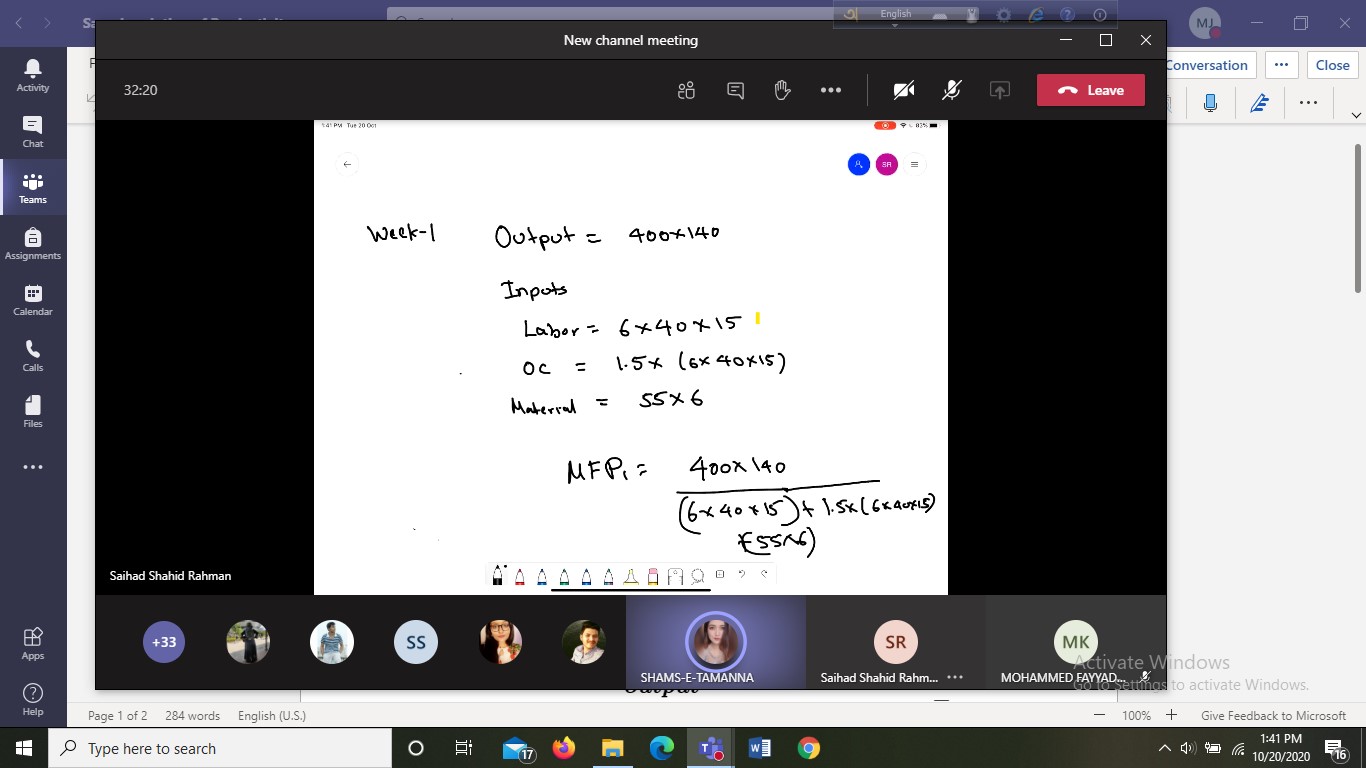 English
MJ
New channel meeting
Conversation
Close
32:20
Leave
Activity
Chat
Teams
Assignments
Calendar
Calls
Files
Apps
Help
1:41 PM Tue 20 Oct
83%
SR
Week-1 Output = 400×140
Inputs
Labor = 6×40×15
OC = 1.5×(6×40×15)
Material = 55×6
MFP1 = 400×140
(6×40×15)+1.5×(6×40×15)
+(55×6)
Saihad Shahid Rahman
+33
SS
SR
MK
SHAMS-E-TAMANNA
Saihad Shahid Rahm...
MOHAMMED FAYYAD...
Activate Windows
Go to Settings to activate Windows.
Output
Page 1 of 2 284 words English (U.S.)
100% Give Feedback to Microsoft
Type here to search
17
1:41 PM
10/20/2020
16